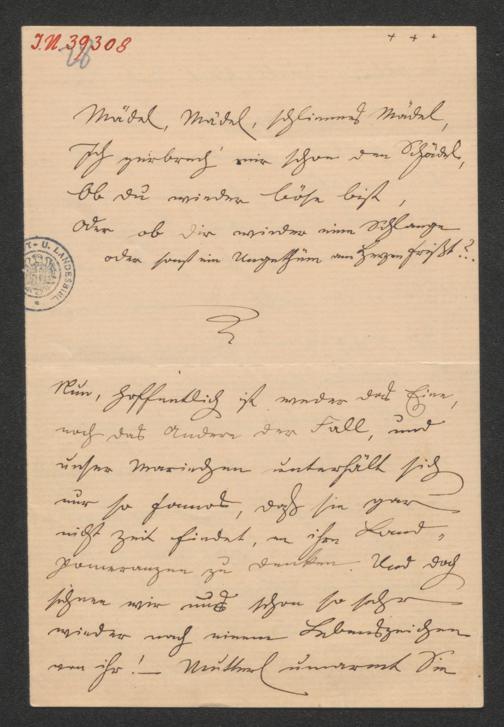 I.N. 39308
+ + +
Mädel, Mädel, schlimmes Mädel,
Ich zerbrech' mir schon den Schädel,
Ob du wieder böse bist,
Oder ob dir wieder eine Schlange
oder sonst ein Ungethüm am Herzen frißt?..
T- U. LANDESBIBL.
Nun, hoffentlich ist weder das Eine,
noch das Andere der Fall, und
unser Mariechen unterhält sich
nur so famos, daß sie gar
nicht Zeit findet, an ihre Land-
pomeranzen zu denken. Und doch
sehnen wir uns schon so sehr
wieder nach einem Lebenszeichen
von ihr! — Mutterl umarmt Sie